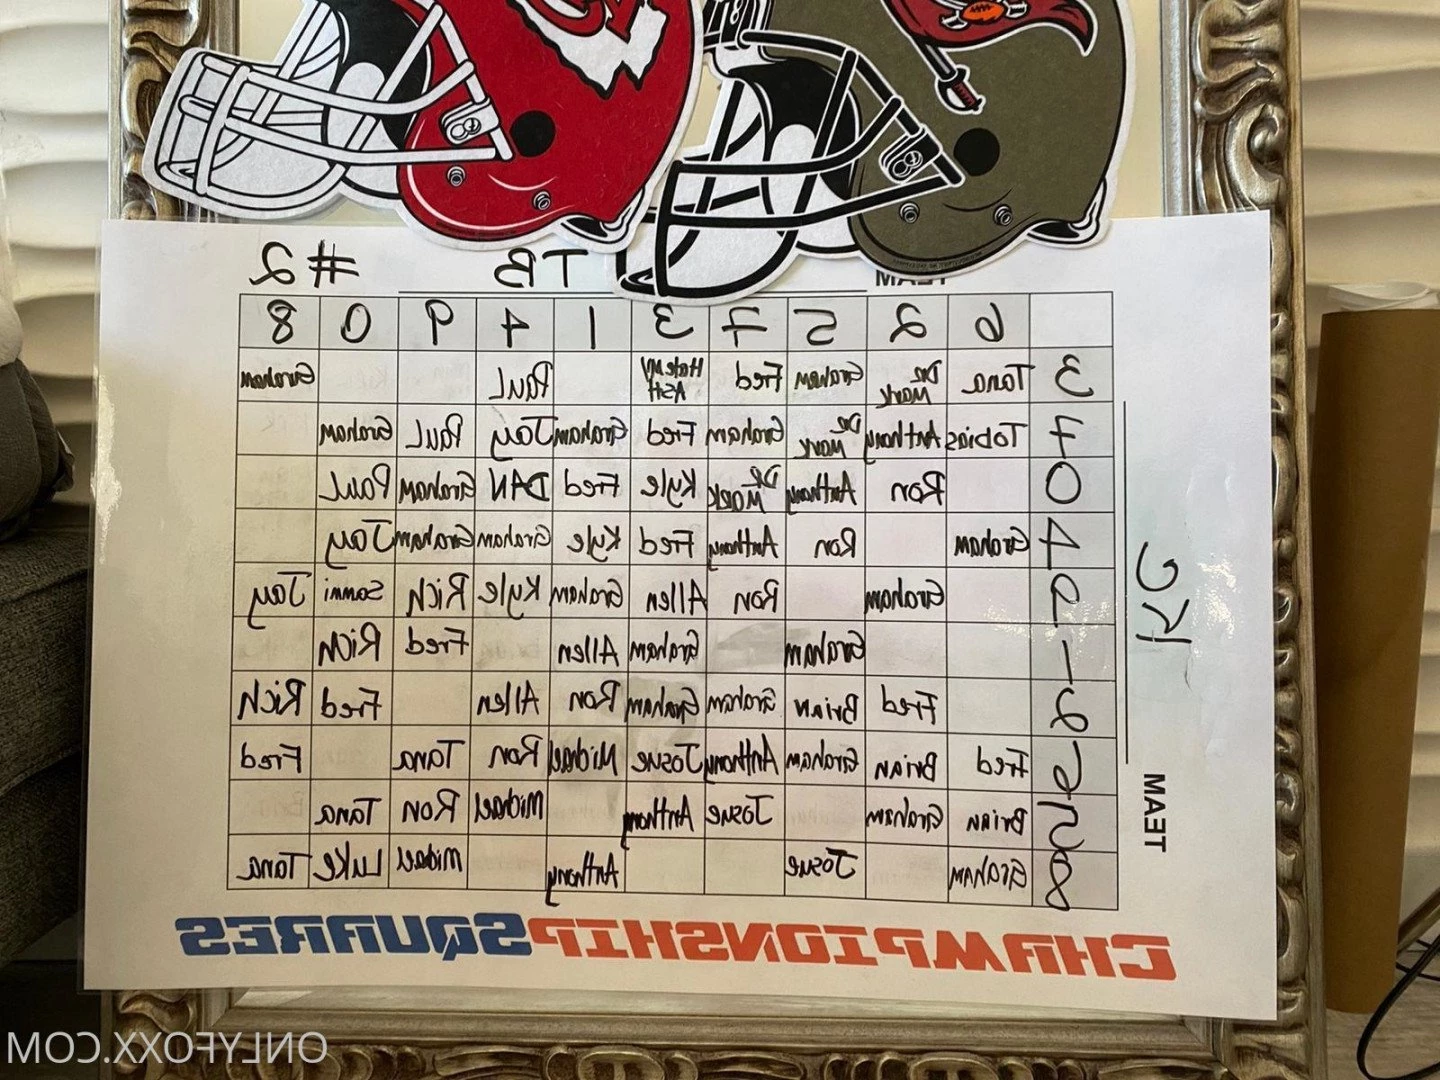 TEAM TB #2
6 2 5 7 3 1 4 9 0 8
3 Tana DR. Mark Graham Fred Hate my ASH Paul Graham
7 Tobias Anthony DR. Mark Graham Fred Graham Jay Paul Graham
0 Ron Anthony DR. Mark Kyle Fred DAN Graham Paul
4 Graham Ron Anthony Fred Kyle Graham Graham Jay
9 Graham Ron Allen Graham Kyle Rich Sammi Jay
1 Graham Graham Allen Fred Rich
2 Fred Brian Graham Graham Ron Allen Fred Rich
6 Fred Brian Graham Anthony Josue Michael Ron Tana Fred
5 Brian Graham Josue Anthony Michael Ron Tana
8 Graham Josue Anthony Michael Luke Tana
TEAM KC
CHAMPIONSHIPSQUARES
ONLYFOXX.COM